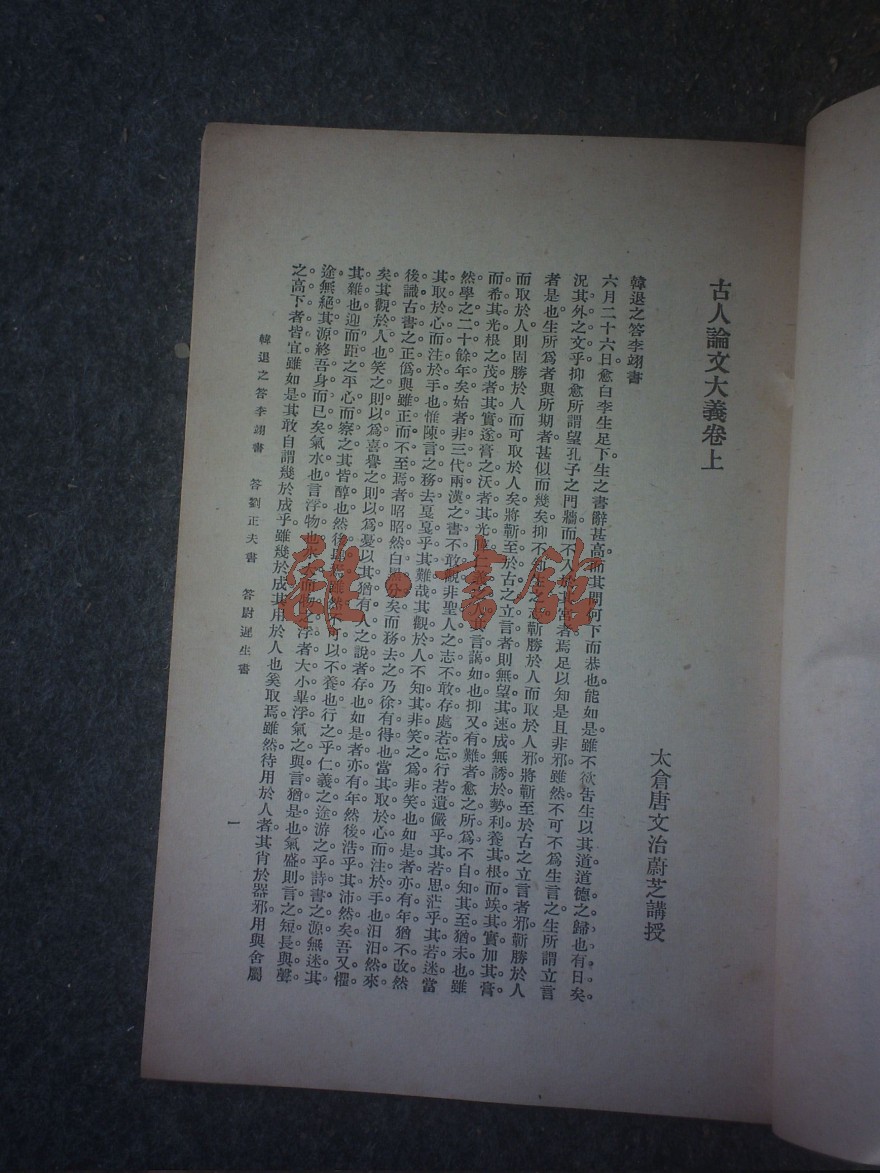 古人論文大義卷上
太倉唐文治蔚芝講授
韓退之答李翊書
六月二十六日愈白李生足下生之書辭甚高而其問何下而恭也能如是雖不欲告生以其道道德之歸也有日矣。
況其外之文乎抑愈所謂望孔子之門牆而不入於其宮者焉足以知是且非邪雖然不可不爲生言之生所謂立言
者是也生所爲者與所期者甚似而幾矣抑不知生之志蘄勝於人而取於人邪將蘄至於古之立言者邪蘄勝於人
而取於人則固勝於人而可取於人矣將蘄至於古之立言者則無望其速成無誘於勢利養其根而竢其實加其膏
而希其光根之茂者其實遂膏之沃者其光仁義其言藹如也抑又有難者愈之所爲不自知其至猶未也雖
然學之二十餘年矣始者非三代兩漢之書不敢觀非聖人之志不敢存處若忘行若遺儼乎其若思茫乎其若迷當
其取於心而注於手也惟陳言之務去戛戛乎其難哉其觀於人不知其非笑之爲非笑也如是者亦有年猶不改然
後識古書之正僞與雖正而不至焉者昭昭然白黑分矣而務去之乃徐有得也當其取於心而注於手也汩汩然來
矣其觀於人也笑之則以爲喜譽之則以爲憂以其猶有人之說者存也如是者亦有年然後浩乎其沛然矣吾又懼
其雜也迎而距之平心而察之其皆醇也然後肆焉雖然不可以不養也行之乎仁義之途游之乎詩書之源無迷其
途無絕其源終吾身而已矣氣水也言浮物也水大而物之浮者大小畢浮氣之與言猶是也氣盛則言之短長與聲
之高下者皆宜雖如是其敢自謂幾於成乎雖幾於成其用於人也奚取焉雖然待用於人者其肖於器邪用與舍屬
韓退之答李翊書　答劉正夫書　答尉遲生書
一
雜·書館